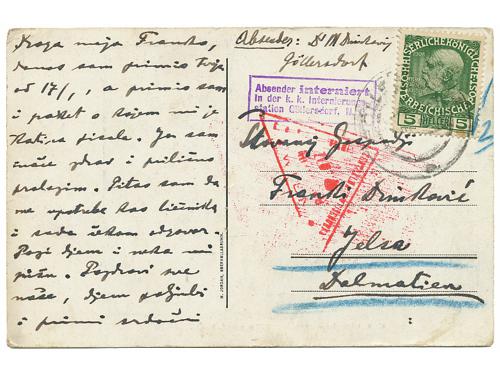 Draga moja Franko,
danas sam primio Tvoju
od 17/, , a primio sam
i paket o kojem mi je
Katica pisala. Ja sam
inače zdrav i prilično
prolazim. Pitao sam da
me upotrebe kao liečnika
i sada čekam odgovor.
Pazi djem i neka mi
pišu. Pozdravi sve
naše, djem poljubi
i primi srdačni
Absender: Dr M Drinković
Göllersdorf
Absender interniert
in der k. k. Internierungs-
station Göllersdorf, N.
KAISERLICHE KÖNIGLICHE
ÖSTERREICHISCHE POST
5 HELLER 5
Gospodji
Franki Drinković
Jelsa
Dalmatien